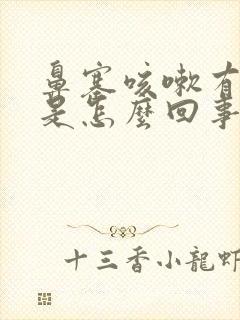 鼻塞咳嗽有
是怎麼回事
十三香小龍蝦